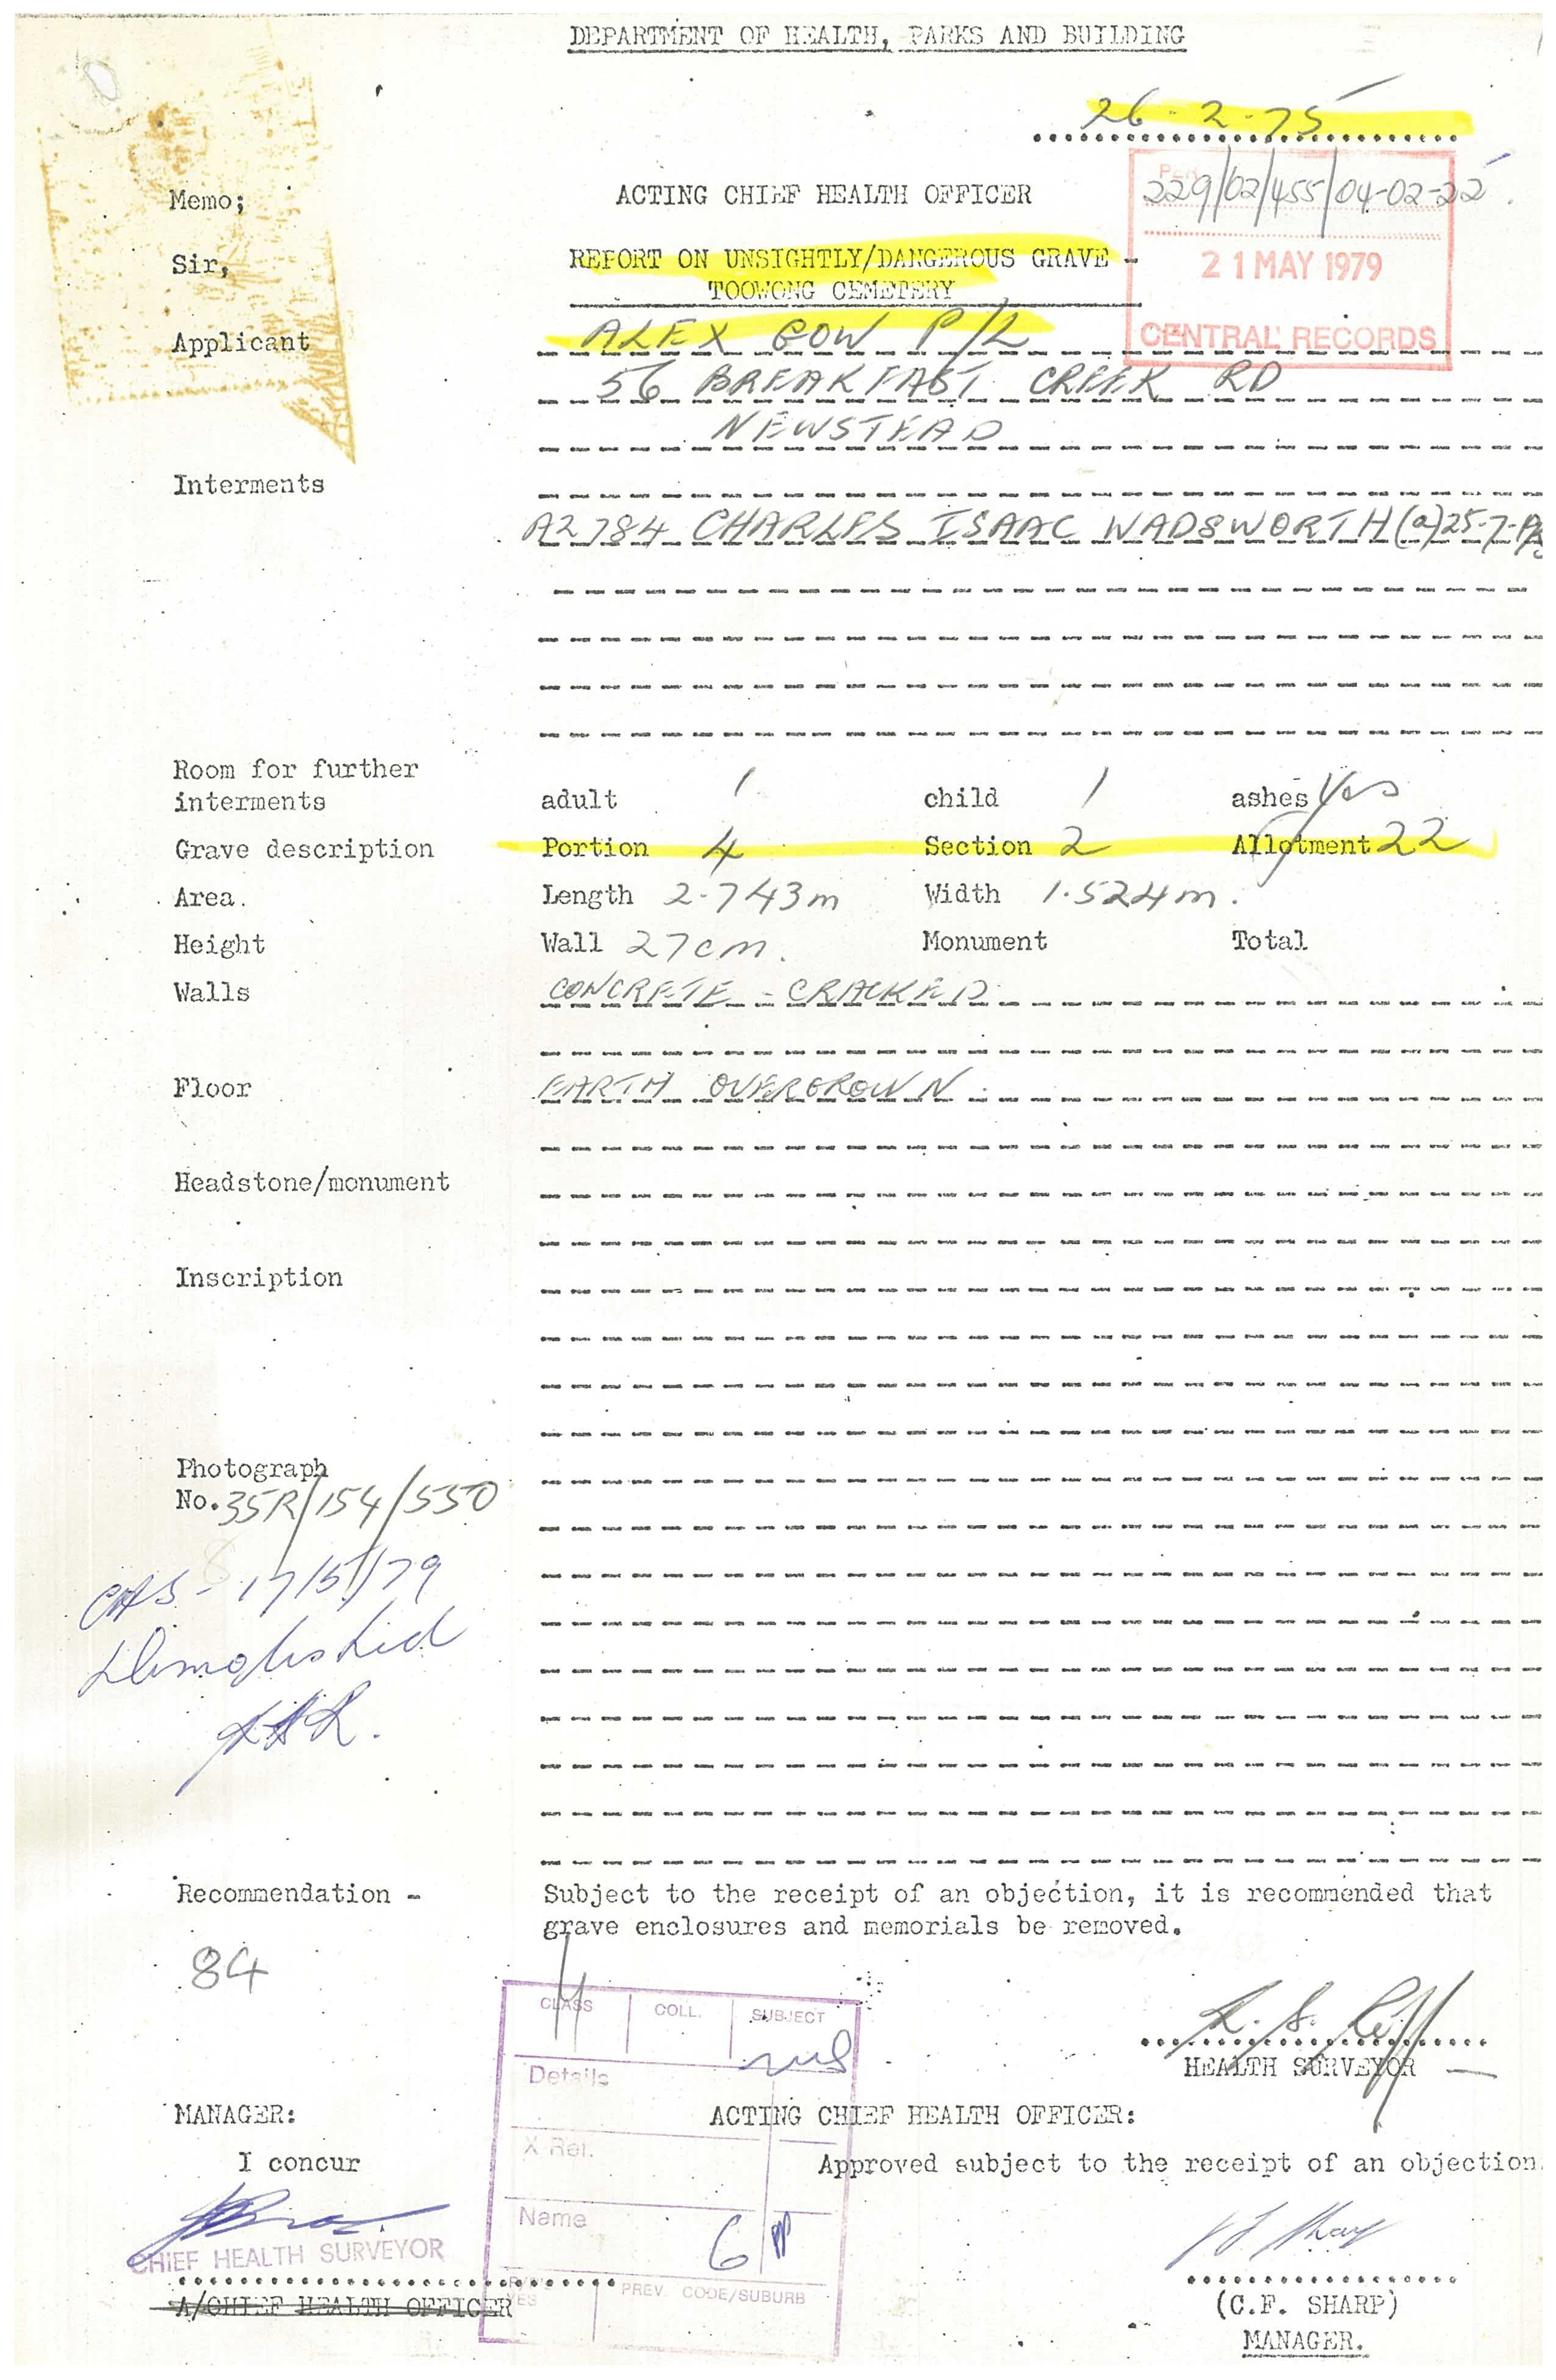 DEPARTMENT OF HEALTH, PARKS AND BUILDING
26-2-75
Memo;
ACTING CHIEF HEALTH OFFICER
229/02/455/04-02-22
Sir,
REPORT ON UNSIGHTLY/DANGEROUS GRAVE -
TOOWONG CEMETERY
21 MAY 1979
CENTRAL RECORDS
Applicant
ALEX GOW P/L
56 BREAKFAST CREEK RD
NEWSTEAD
Interments
A2784 CHARLES ISAAC WADSWORTH (a) 25-7-
Room for further
interments adult 1 child 1 ashes Yes
Grave description Portion 4 Section 2 Allotment 22
Area. Length 2.743m Width 1.524m.
Height Wall 27cm. Monument Total
Walls CONCRETE - CRACKED
Floor EARTH OVERGROWN.
Headstone/monument
Inscription
Photograph
No. 35R/154/550
17/5/79
Dimolished
Recommendation - Subject to the receipt of an objection, it is recommended that
grave enclosures and memorials be removed.
84
CLASS COLL. SUBJECT
Details
HEALTH SURVEYOR
MANAGER: ACTING CHIEF HEALTH OFFICER:
X Ref.
I concur Approved subject to the receipt of an objection.
Name
6
CHIEF HEALTH SURVEYOR
PREV. CODE/SUBURB
A/CHIEF HEALTH OFFICER
(C.F. SHARP)
MANAGER.